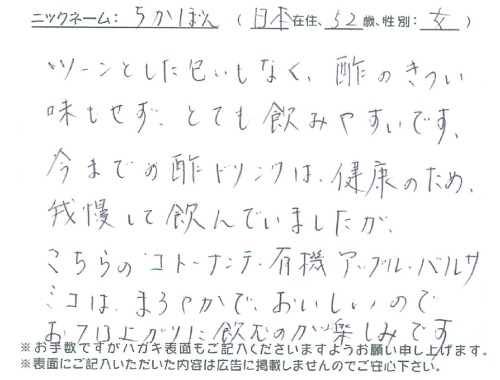 ニックネーム: ちかぽん (日本在住、52歳、性別: 女)
ツーンとした匂いもなく、酢のきつい
味もせず、とても飲みやすいです。
今までの酢ドリンクは、健康のため、
我慢して飲んでいましたが、
こちらのコトーナンテ・有機アップル・バルサ
ミコは、まろやかで、おいしいので
おフロ上がりに飲むのが楽しみです
※お手数ですがハガキ表面もご記入くださいますようお願い申し上げます。
※表面にご記入いただいた内容は広告に掲載しませんのでご安心下さい。